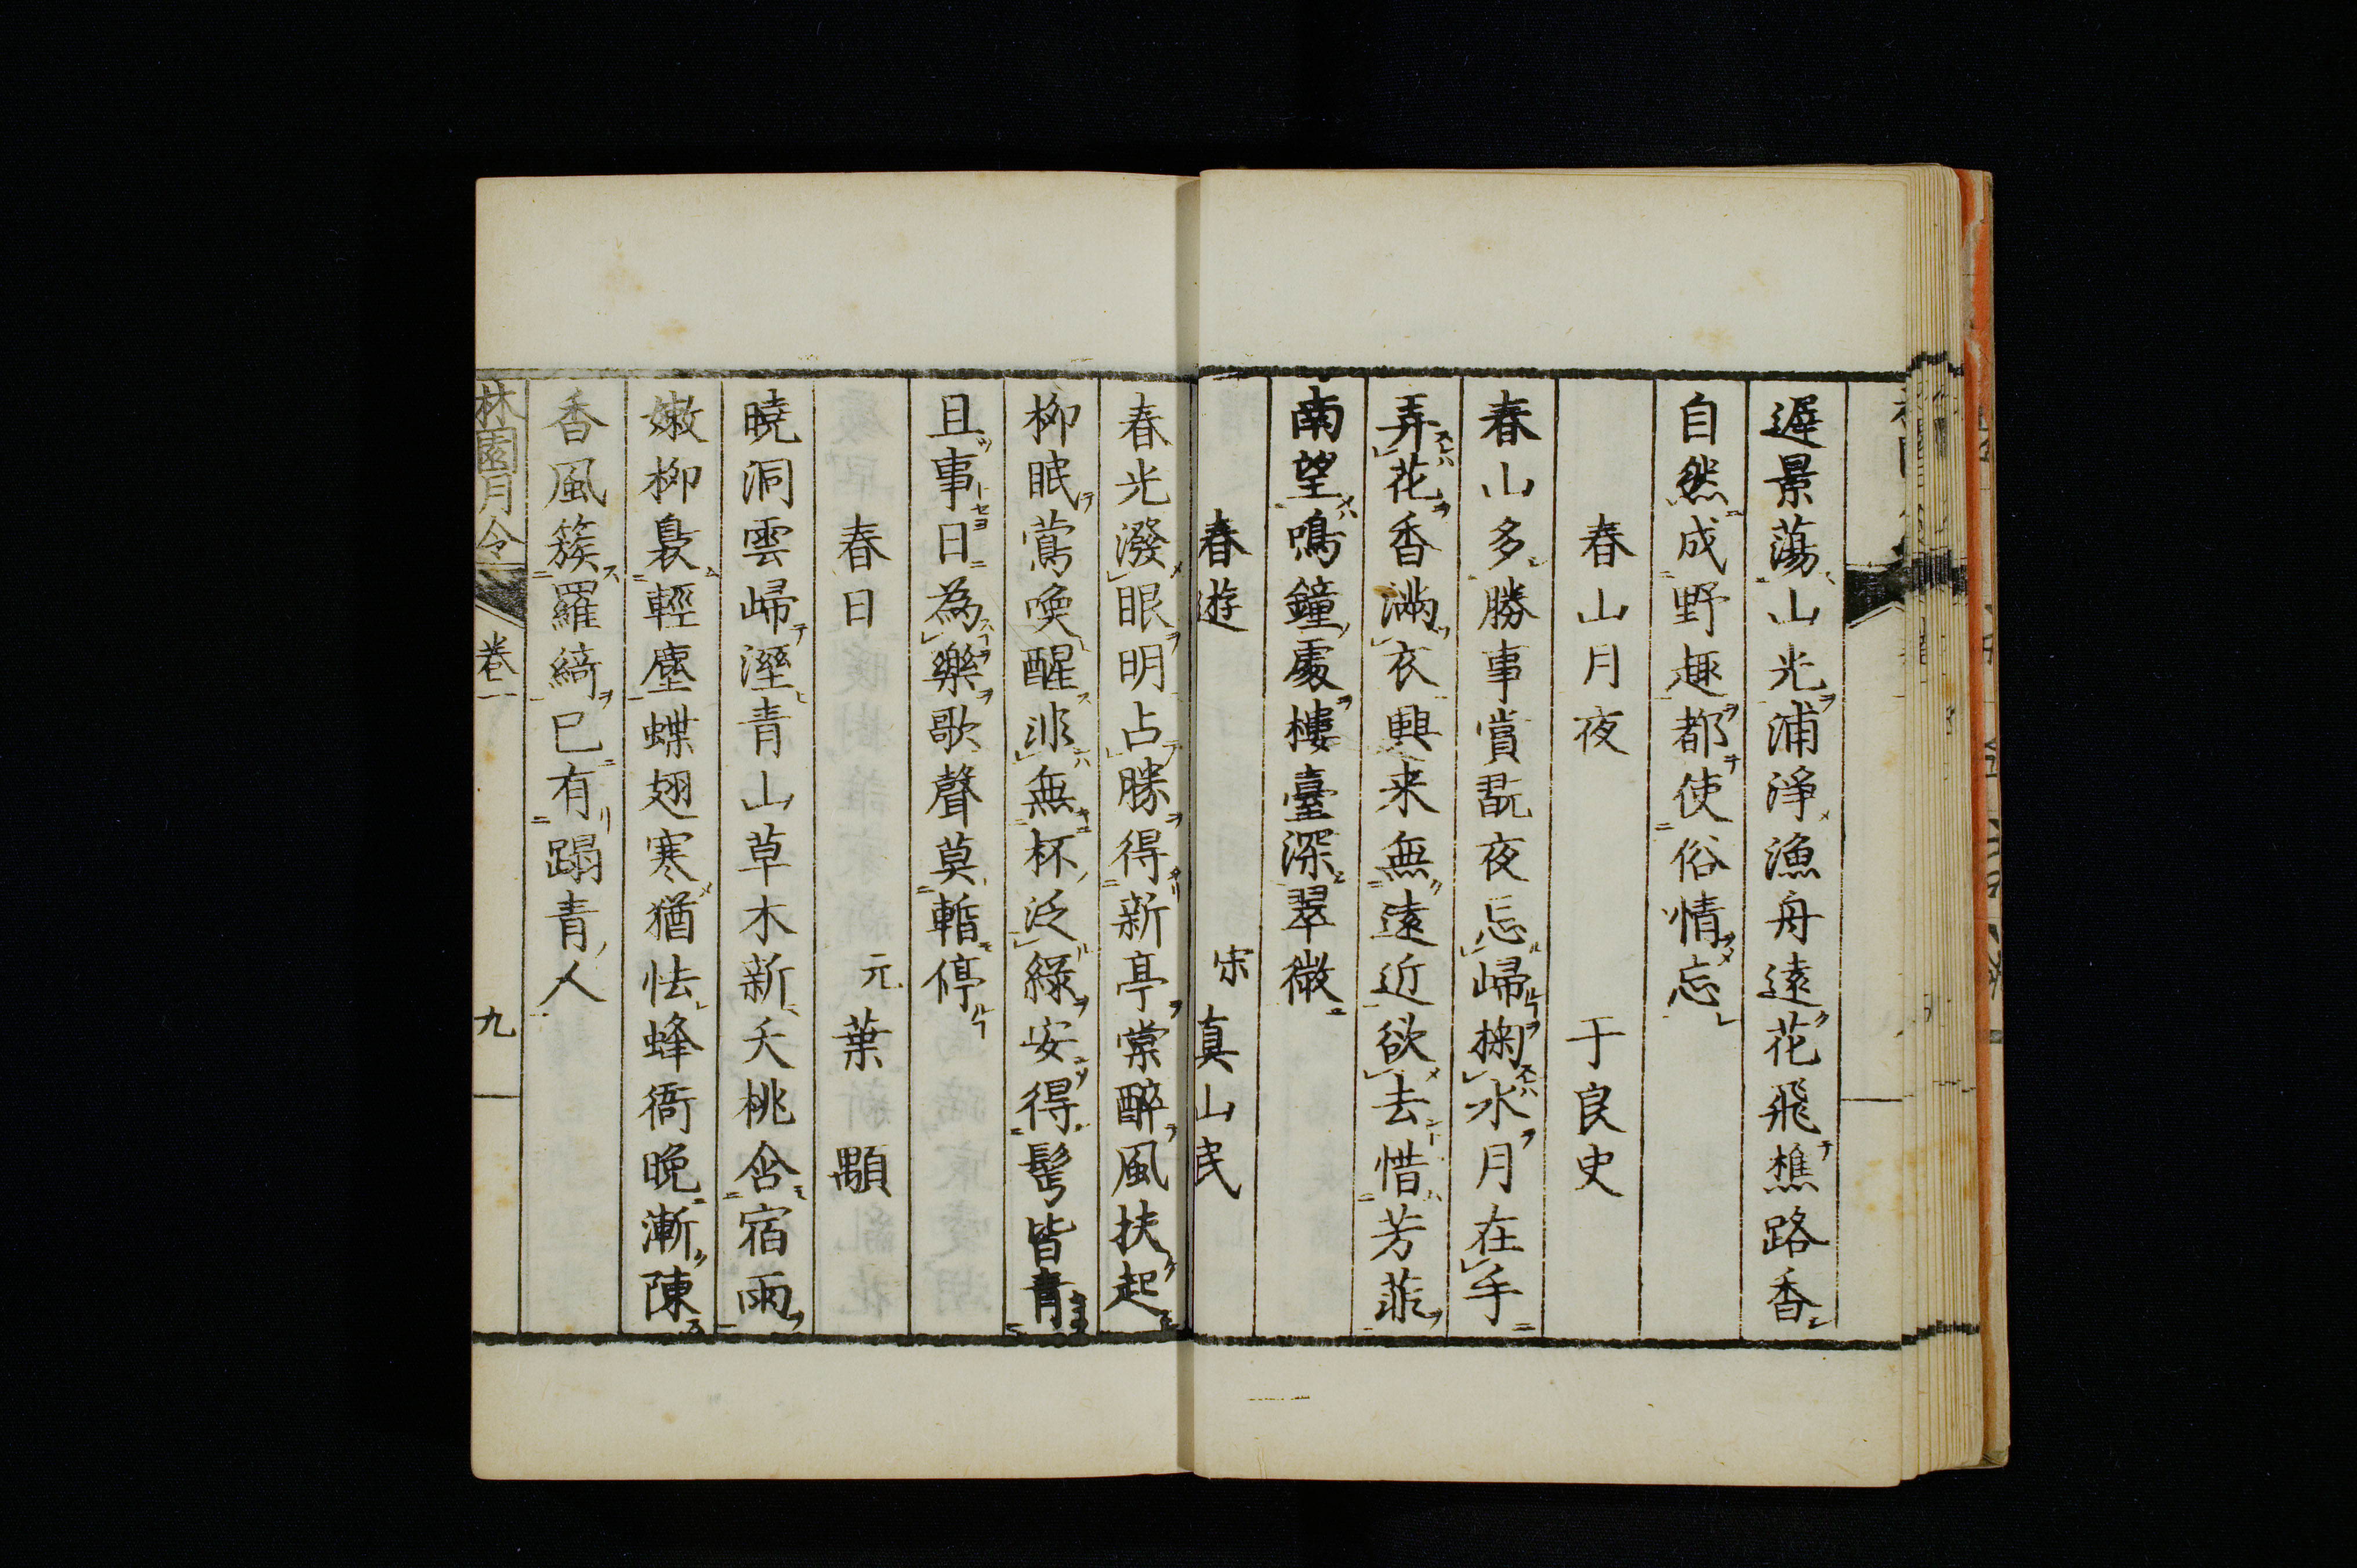 遅景蕩山光浦淨漁舟遠花飛樵路香
自然成野趣都使俗情忘
春山月夜 于良史
春山多勝事賞翫夜忘歸掬水月在手
弄花香滿衣興来無遠近欲去惜芳菲
南望鳴鐘處樓臺深翠微
春遊 宋 真山民
春光潑眼明占勝得新亭棠醉風扶起
柳眠鶯喚醒非無杯泛綠安得髩皆青
且事日為樂歌聲莫暫停
春日 元 葉顒
曉洞雲歸溼青山草木新夭桃含宿雨
嫩柳裊輕塵蝶翅寒猶怯蜂衙晚漸陳
香風簇羅綺已有踢青人
林園月令 卷一 九